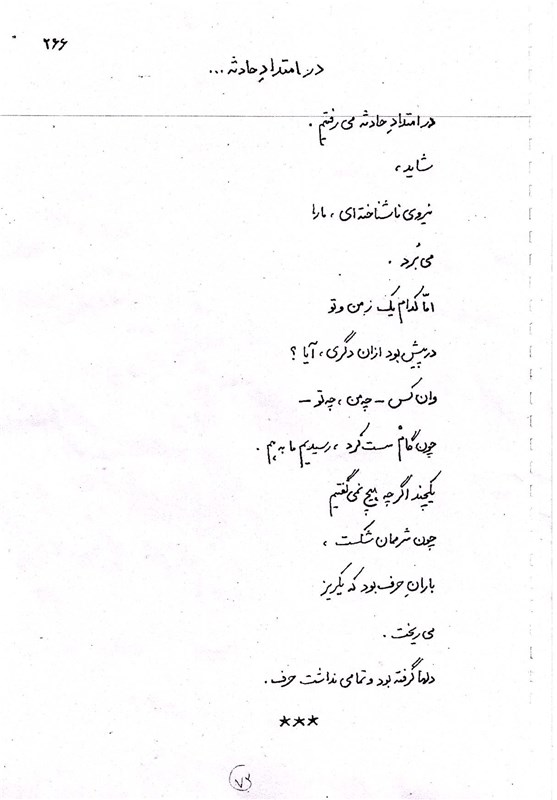 ۲۶۶
در امتدادِ حادثه ...
در امتدادِ حادثه می رفتیم .
شاید ،
نیروی ناشناخته‌ای ، ما را
می بُرد .
امّا کدام یک ز من و تو
در پیش بود از ان دگری ، آیا ؟
وان کس – چه من ، چه تو –
چون گامْ سست کرد ، رسیدیم ما به هم .
یکچند اگر چه هیچ نمی گفتیم
چون شرممان شکست ،
بارانِ حرف بود که یکریز
می ریخت .
دلها گرفته بود و تمامی نداشت حرف .
***
۷۳